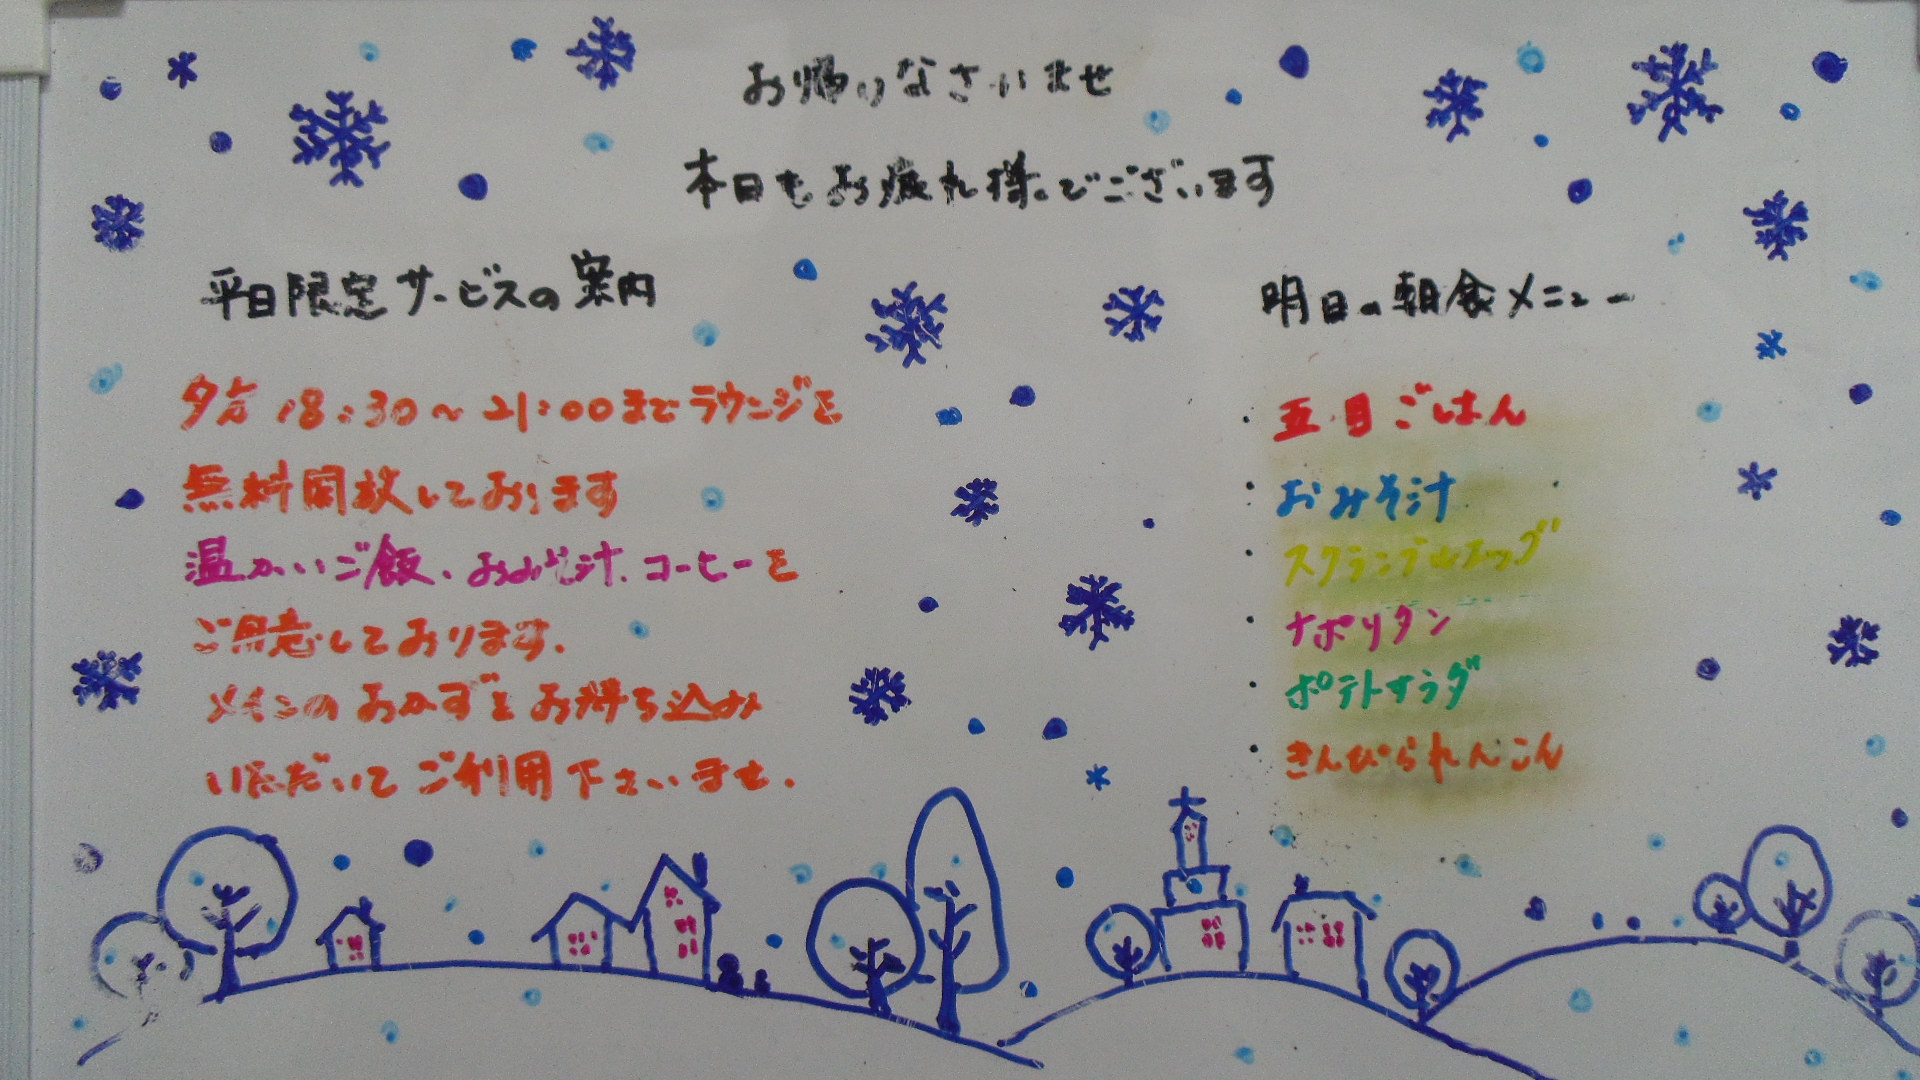 お帰りなさいませ
本日もお疲れ様でございます
平日限定サービスの案内
夕方18:30～21:00までラウンジを
無料開放しております
温かいご飯、おみそ汁、コーヒーを
ご用意しております。
メインのおかずをお持ち込み
いただいてご利用下さいませ。
明日の朝食メニュー
・五目ごはん
・おみそ汁
・スクランブルエッグ
・ナポリタン
・ポテトサラダ
・きんぴられんこん